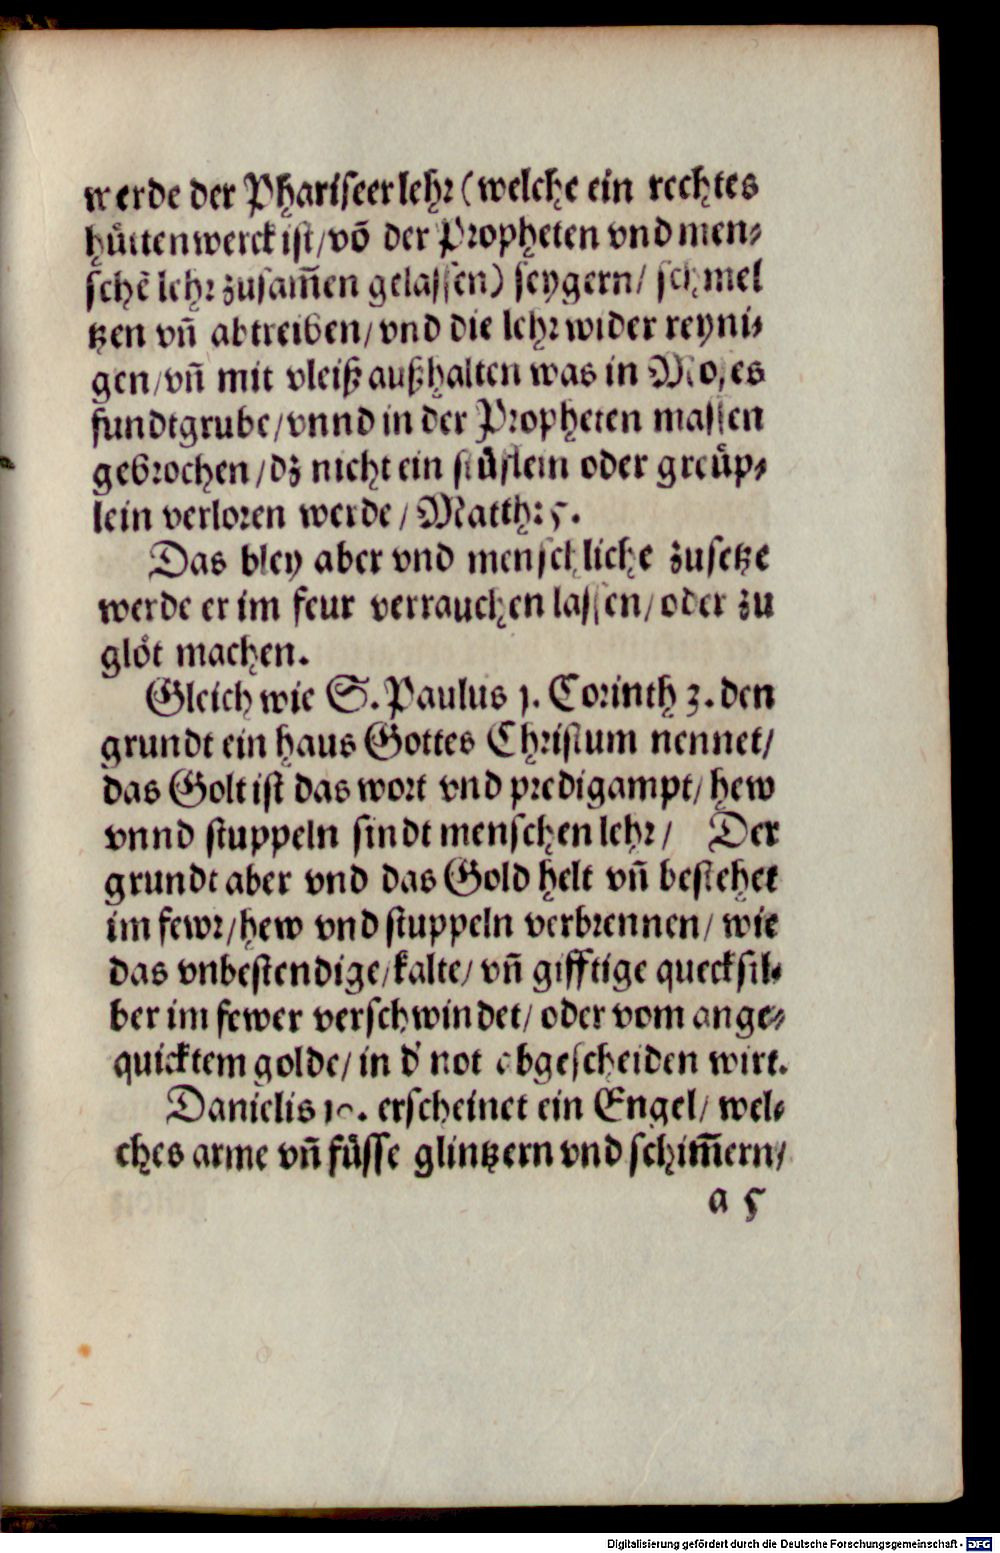 werde der Phariseer lehr (welche ein rechtes
hüttenwerck ist/ võ der Propheten vnd men⸗
schẽ lehr zusam̃en gelassen) seygern/ schmel
tzen vñ abtreiben/ vnd die lehr wider reyni⸗
gen/ vñ mit vleiß außhalten was in Moses
fundtgrube/ vnnd in der Propheten massen
gebrochen/ dz nicht ein stüflein oder greüp⸗
lein verloren werde/ Matth: 5.
Das bley aber vnd menschliche zusetze
werde er im feur verrauchen lassen/ oder zu
glöt machen.
Gleich wie S. Paulus 1. Corinth 3. den
grundt ein haus Gottes Christum nennet/
das Golt ist das wort vnd predigampt/ hew
vnnd stuppeln sindt menschen lehr/ Der
grundt aber vnd das Gold helt vñ bestehet
im fewr/ hew vnd stuppeln verbrennen/ wie
das vnbestendige/ kalte/ vñ gifftige quecksil⸗
ber im fewer verschwindet/ oder vom ange⸗
quicktem golde/ in d' not abgescheiden wirt.
Danielis 10. erscheinet ein Engel/ wel⸗
ches arme vñ füsse glintzern vnd schim̃ern/
a 5
Digitalisierung gefördert durch die Deutsche Forschungsgemeinschaft - DFG